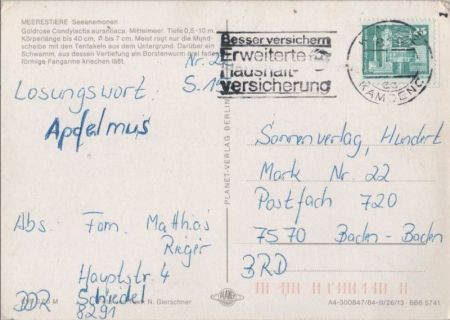 MEERESTIERE Seeanemonen
Goldrose Condylactis aurantiaca. Mittelmeer. Tiefe 0,5-10 m.
Körperlänge bis 40 cm, Ø bis 7 cm. Meist ragt nur die Mund-
scheibe mit den Tentakeln aus dem Untergrund. Darüber ein
Schwamm, aus dessen Vertiefung ein Borstenwurm drei faden-
förmige Fangarme kriechen läßt.
Nr. 22
S. 1
Losungswort:
Apfelmus
Besser versichern
Erweiterte
Haushalt-
versicherung
25
KAMENZ
PLANET-VERLAG BERLIN
Sonnenverlag, Hundert
Mark Nr. 22
Postfach 720
7570 Baden-Baden
BRD
Abs. Fam. Matthias
Rieger
Hauptstr. 4
DDR
8291
N. Gierschner
PLANET
A4-300847/84-III/26/13 - BB6 5741